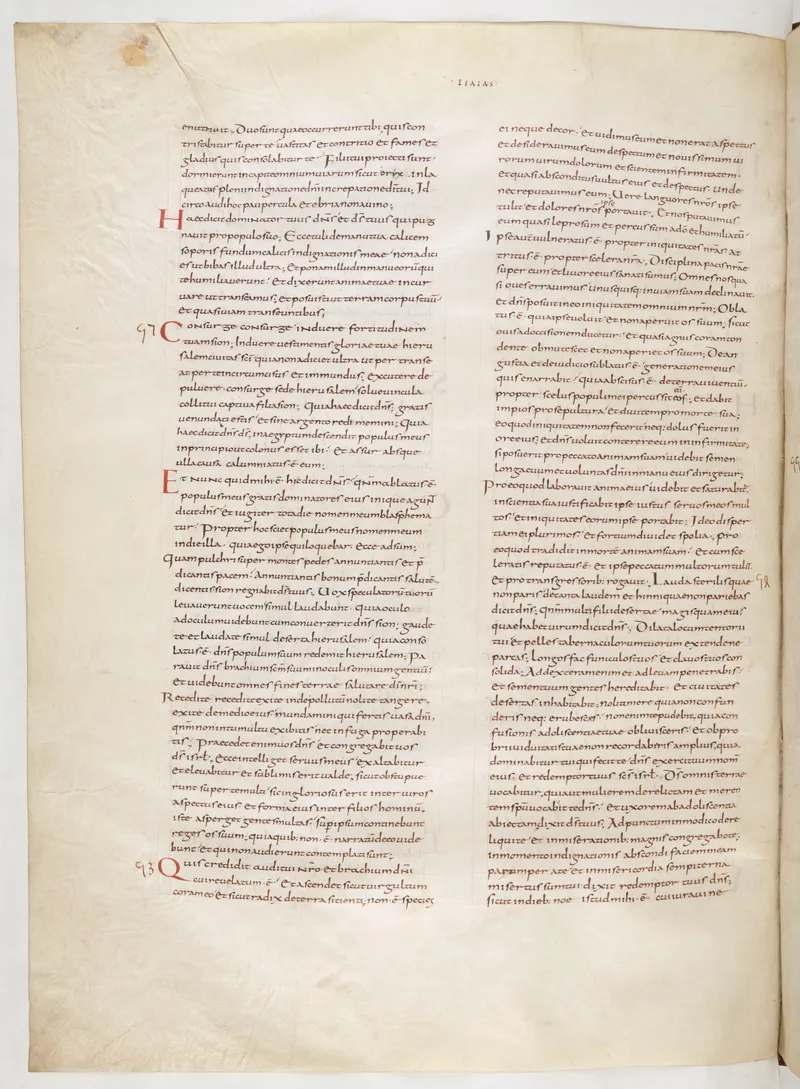 · ISAIAS ·
enutriuit. Duo sunt quae occurrerunt tibi. quis con
tristabitur super te uastitas et contritio et fames et
gladius quis consolabitur te. Filii tui proiecti sunt.
dormierunt in capite omnium uiarum sicut orix. inla
queatus pleni indignatione dñi increpatione dī tui; Id
circo audi hoc paupercula et ebria non a uino;
Haec dicit dominator tuus dñs et dš tuus qui pug
nauit pro populo suo; Ecce tuli de manu tua calicem
soporis fundum calicis indignationis meae non adici
es ut bibas illud ultra; Et ponam illud in manu eorū qui
te humiliauerunt. et dixerunt animae tuae incur
uare ut transeamus; et posuisti ut terram corpus tuū
et quasi uiam transeuntibus;
97 Consurge consurge induere fortitudinem
tuam sion; Induere uestimentis gloriae tuae hieru
salem ciuitas scī quia non adiciet ultra ut per transe
at per te incircumcisus et immundus; excutere de
puluere. consurge sede hierusalem solue uincula
colli tui captiua filia sion; Quia haec dicit dñs. gratis
uenundati estis et sine argento redimemini; Quia
haec dicit dñs dš. in aegyptum descendit populus meus
in principio ut colonus esset ibi. et assur absque
ulla causa calumniatus ē eum;
Et nunc quid mihi ē hic dicit dñs. qñm ablatus ē
populus meus gratis dominatores eius inique agunt
dicit dñs. et iugiter tota die nomen meum blasphema
tur. Propter hoc sciet populus meus nomen meum
in die illa. quia ego ipse qui loquebar. ecce adsum;
Quam pulchri super montes pedes annunciantis et p̄
dicantis pacem. Annuntiantis bonum p̄dicantis salutē.
dicentis sion regnabit dš tuus; Uox speculatorū tuorū
leuauerunt uocem simul laudabunt. quia oculo
ad oculum uidebunt cum conuerterit dñs sion; gaude
te et laudate simul deserta hierusalem. quia conso
latus ē dñs populum suum redemit hierusalem; Pa
rauit dñs brachium scm̄ suum in oculis omnium gentiū.
et uidebunt omnes fines terrae salutare dī nri;
Recedite recedite exite inde pollutū nolite tangere.
exite de medio eius mundamini qui fertis uasa dñi.
qñm non in tumultu exibitis nec in fuga properabi
tis. Praecedet enim uos dñs et congregabit uos
dš isrl. ecce intelliget seruus meus exaltabitur
et eleuabitur et sublimis erit ualde. sicut obstupue
runt super te multi sic inglorius erit inter uiros
aspectus eius et forma eius inter filios hominū.
iste asperget gentes multas. super ipsum continebunt
reges os suum; quia quib; non ē narratū de eo uide
bunt et qui non audierunt contemplati sunt;
93 Quis credidit auditui nr̄o et brachium dñi
cui reuelatum ē. et ascendet sicut uirgultum
coram eo et sicut radix de terra sitienti. non ē species
ei neque decor. et uidimus eum et non erat aspectus
et desiderauimus eum despectum et nouissimum ui
rorum uirum dolorum et scientem infirmitatem.
et quasi absconditus uultus eius et despectus. unde
nec reputauimus eum; Uere languores nr̄os ipse
tulit et dolores nr̄os ipse portauit. et nos putauimus
eum quasi leprosum et percussum a dō et humiliatū.
Ipse aut uulneratus ē propter iniquitates nr̄as at
tritus ē propter scelera nr̄a. Disciplina pacis nr̄ae
super eum et liuore eius sanati sumus; Omnes nos qua
si oues errauimus unusquisq; in uiam suam declinauit.
et dñs posuit in eo iniquitatem omnium nrm̄; Obla
tus ē. quia ipse uoluit et non aperuit os suum; sicut
ouis ad occisionem ducetur. et quasi agnus coram ton
dente obmutescet et non aperiet os suum; De an
gustia et de iudicio sublatus ē. generationem eius
quis enarrabit. quia abscisus ē de terra uiuentiū.
propter scelus populi mei percussi eum; et dabit
impios pro sepultura et diuitem pro morte sua;
eo quod iniquitatem non fecerit neq; dolus fuerit in
ore eius; et dñs uoluit conterere eum in infirmitate.
si posuerit pro peccato animam suam uidebit semen
longaeuum et uoluntas dñi in manu eius dirigetur;
Pro eo quod laborauit anima eius uidebit et saturabit.
in scientia sua iustificabit ipse iustus seruos meos mul
tos. et iniquitates eorum ipse portabit; Ideo disper
tiam ei plurimos. et fortium diuidet spolia. pro
eo quod tradidit in morte animam suam. et cum sce
leratis reputatus ē. et ipse peccatum multorum tulit.
et pro transgressorib; rogauit. Lauda sterilis quae 98
non paris decanta laudem et hinni quae non pariebas
dicit dñs; qñm multi filii desertae magis quam eius
quae habet uirum dicit dñs. Dilata locum tentorii
tui et pelles tabernaculorum tuorum extende ne
parcas; Longos fac funiculos tuos et clauos tuos con
solida; Ad dexteram enim et ad leuam penetrabis.
et semen tuum gentes hereditabit. et ciuitates
desertas inhabitabit; noli timere quia non confun
deris neq; erubesces. non enim te pudebit. quia con
fusionis adolescentiae tuae obliuisceris. et obpro
brii uiduitatis tuae non recordaberis amplius; quia
dominabitur tui qui fecit te dñs exercituum nom̄
eius; et redemptor tuus scs isrl. Dš omnis terrae
uocabitur. quia ut mulierem derelictam et mere
tem spū uocabit te dñs. et uxorem ab adolescentia
abiectam dixit dš tuus; Ad punctum in modico dere
liqui te et in miserationib; magnis congregabo te;
in momento indignationis abscondi faciem meam
parumper a te et in misericordia sempiterna
misertus sum tui. dixit redemptor tuus dñs;
sicut in dieb; noe istud mihi ē. cui iuraui ne